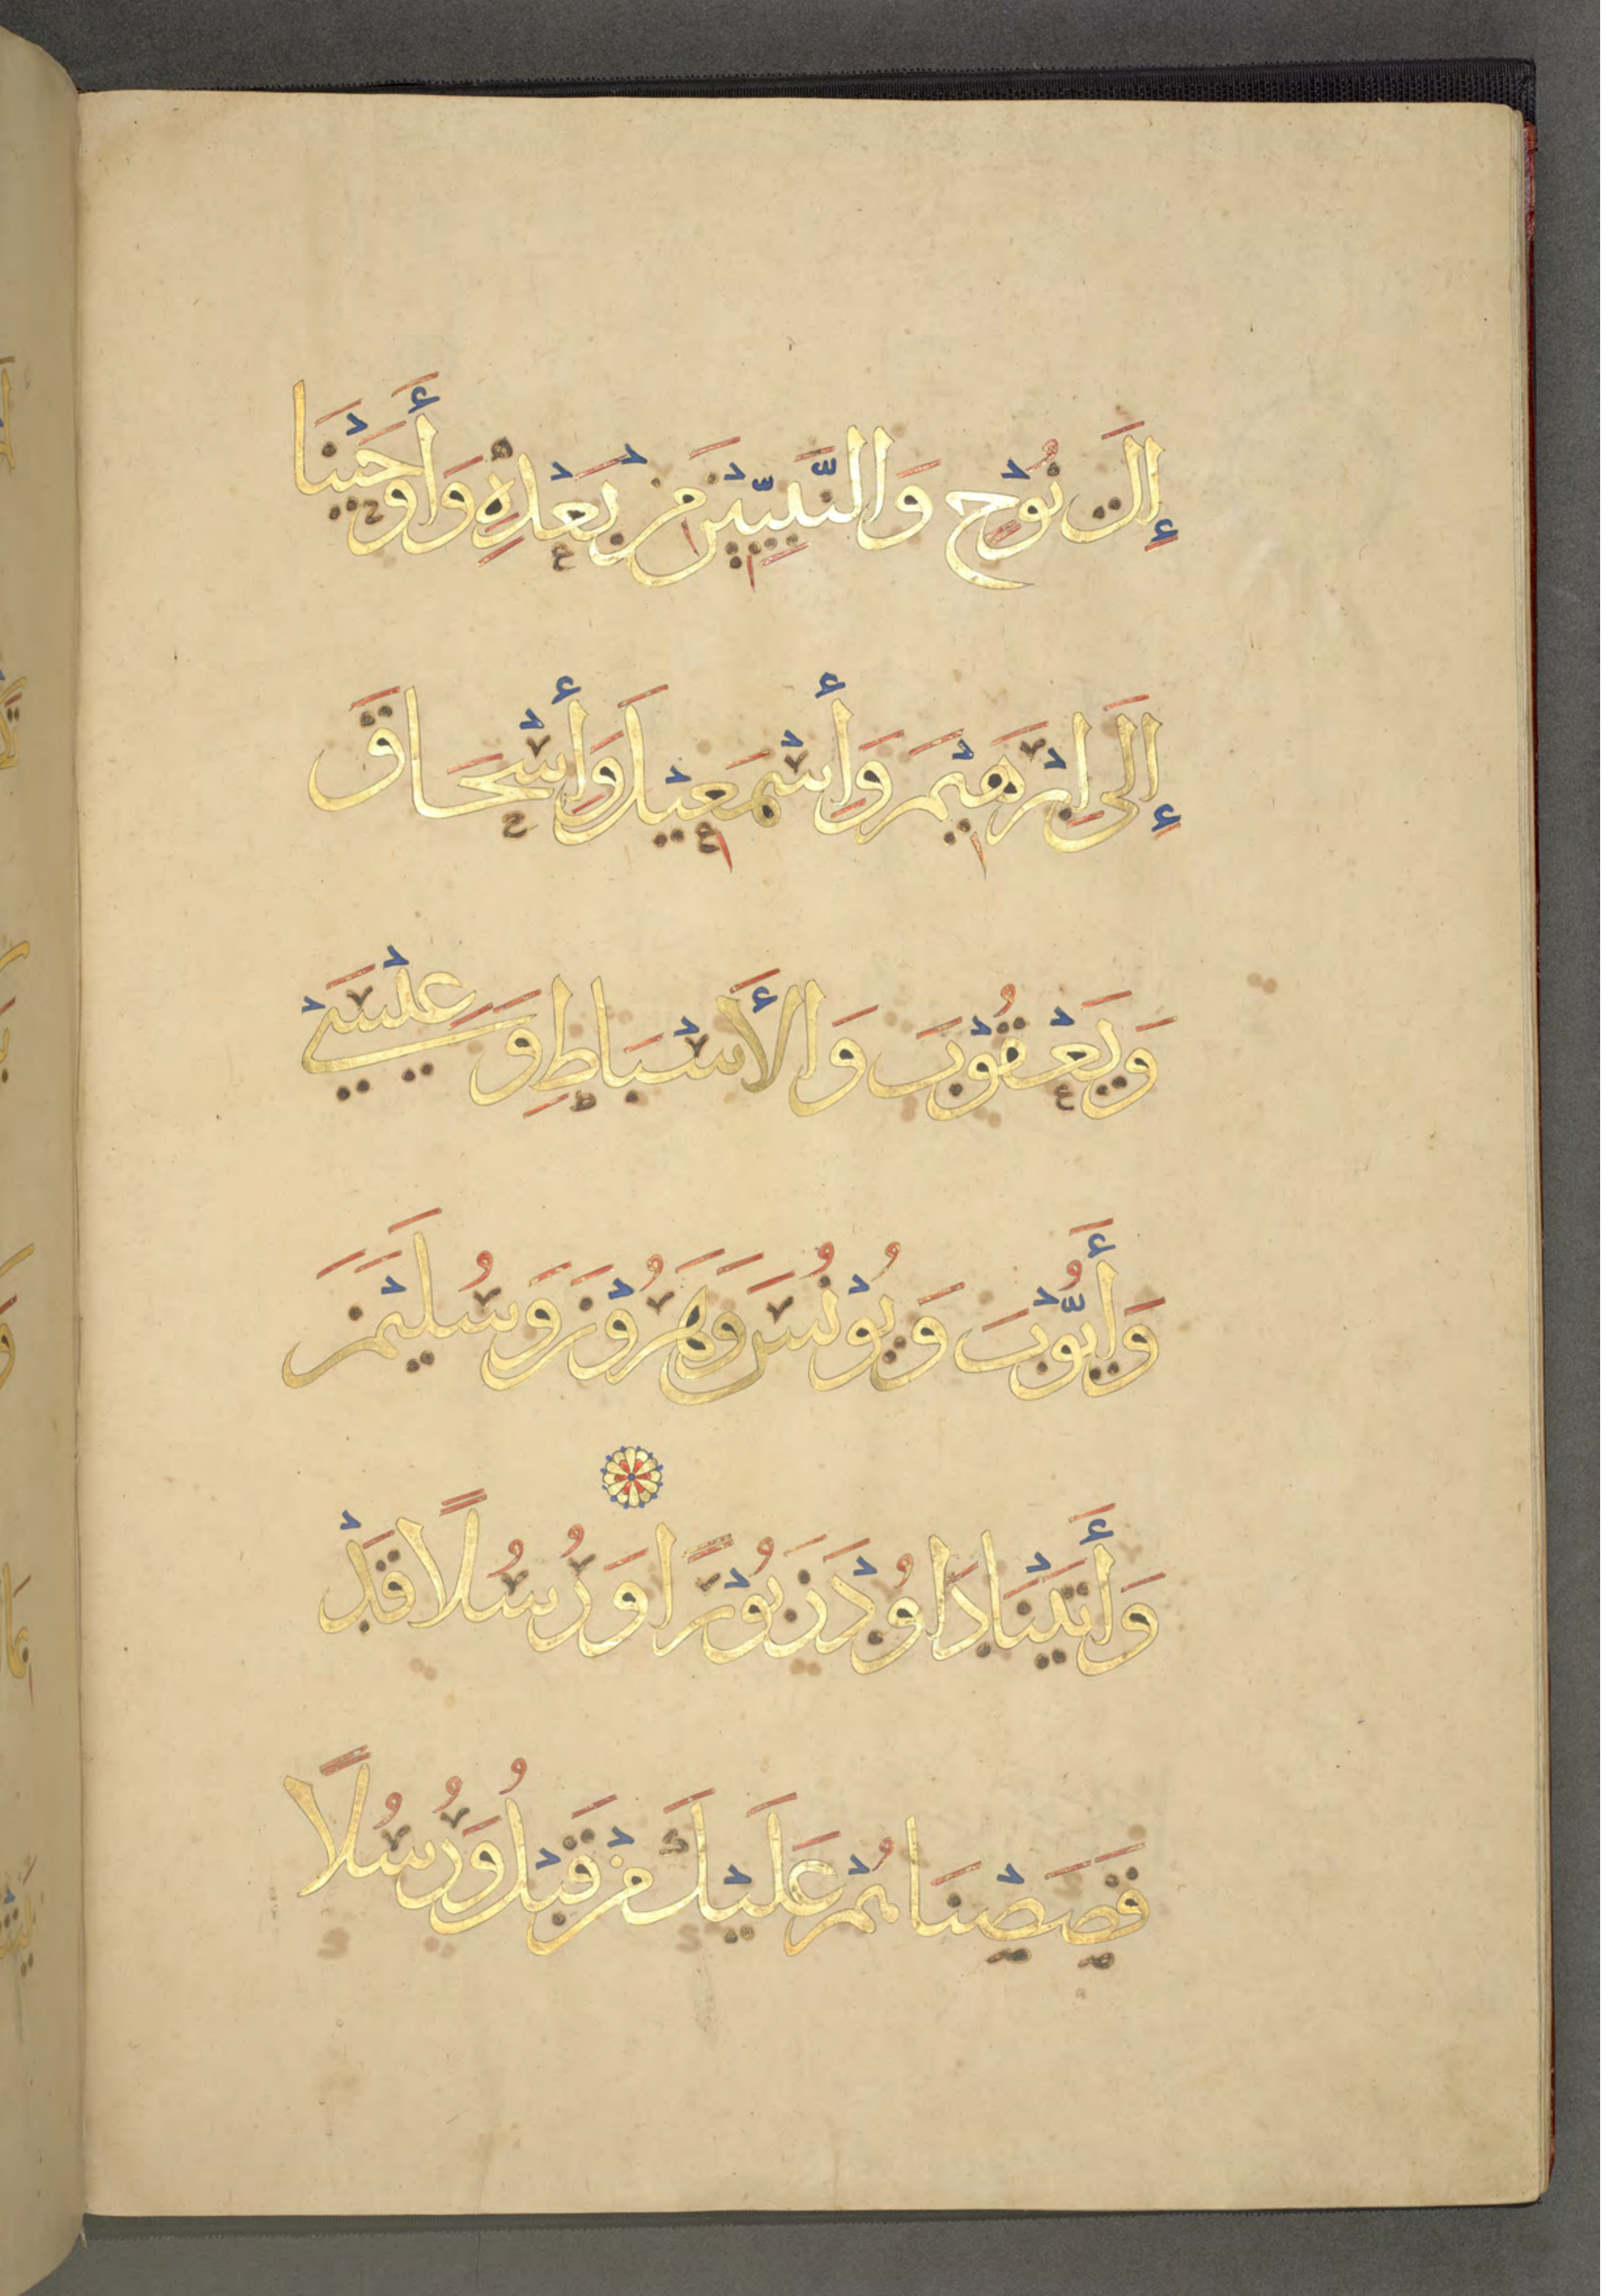 إِلَىٰ نُوْحٍ وَالنَّبِيّٖيْنَ مِنْ بَعْدِهٖ وَأَوْحَيْنَا
إِلَىٰ اِبْرَهِيْمَ وَأِسْمَعِيْلَ وَأِسْحَاقَ
وَيَعْقُوْبَ وَالأَسْبَاطِ وَعِيْسَيْ
وَأَيُّوْبَ وَيُوْنُسَ وَهَرُوْنَ وَسُلَيْمَنَ
وَأَتَيْنَا دَاوُدَ زَبُوْرًا وَرُسُلًا قَدْ
قَصَصْنَاهُمْ عَلَيْكَ مِنْ قَبْلُ وَرُسُلًا